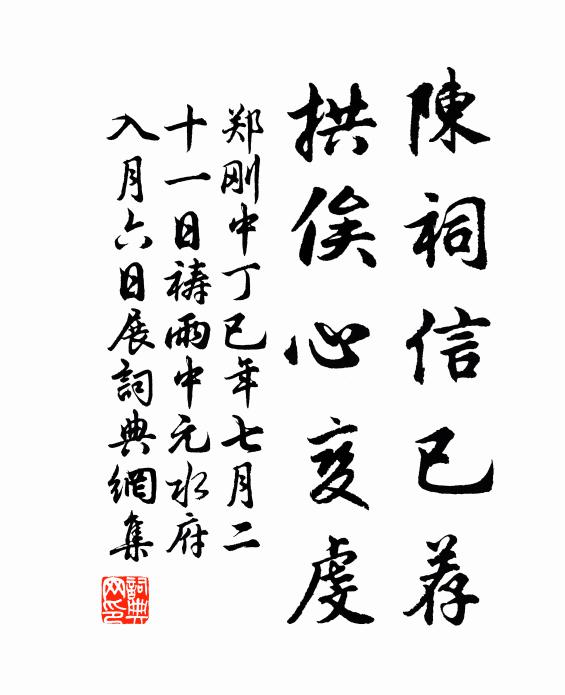 陳祠信已荐
拱俟心变虔
郑刚中丁巳年七月二
十一日祷雨中元水府
入月六日展詞典網集
詞典网印